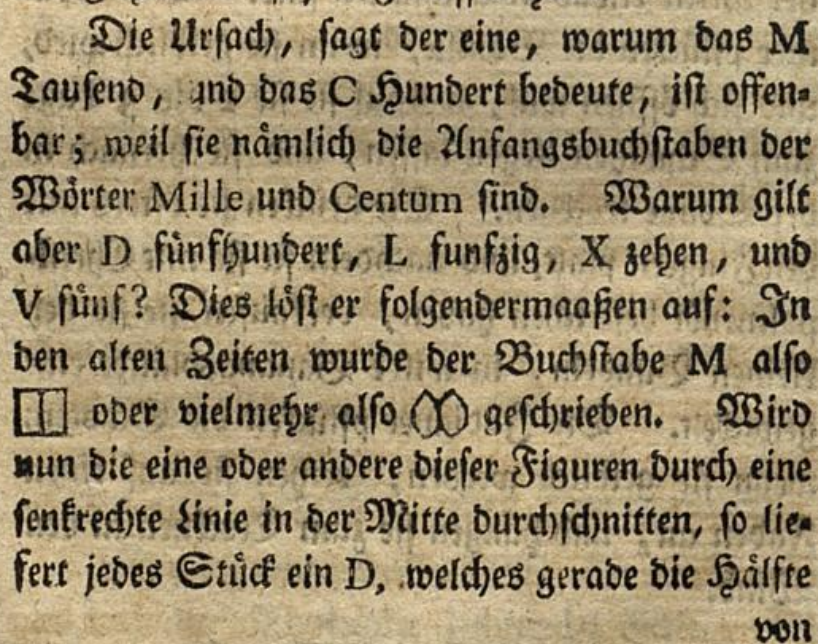 Die Ursach, sagt der eine, warum das M
Tausend, und das C Hundert bedeute, ist offen-
bar; weil sie nämlich die Anfangsbuchstaben der
Wörter Mille und Centum sind. Warum gilt
aber D fünfhundert, L funfzig, X zehen, und
V fünf? Dies löst er folgendermaaßen auf: In
den alten Zeiten wurde der Buchstabe M also
oder vielmehr also geschrieben. Wird
nun die eine oder andere dieser Figuren durch eine
senkrechte Linie in der Mitte durchschnitten, so lie-
fert jedes Stück ein D, welches gerade die Hälfte
von